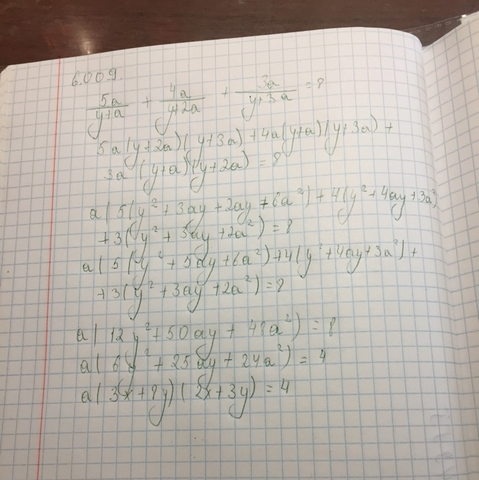 6.009.
5a/(y+a) + 4a/(y+2a) + 3a/(y+3a) = 8
5a(y+2a)(y+3a)+4a(y+a)(y+3a)+
3a(y+a)(y+2a)=8
a(5(y²+3ay+2ay+6a²)+4(y²+4ay+3a²)
+3(y²+3ay+2a²)=8
a(5(y²+5ay+6a²)+4(y²+4ay+3a²)+
+3(y²+3ay+2a²)=8
a(12y²+50ay+48a²)=8
a(6y²+25ay+24a²)=4
a(3x+8y)(2x+3y)=4